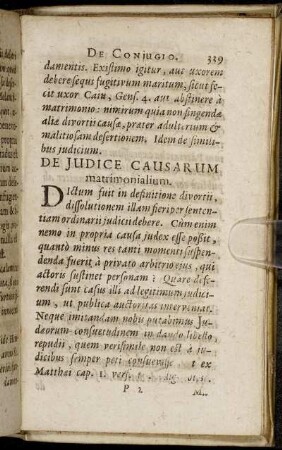 De Conjugio. 339
damentis. Existimo igitur, aut uxorem
debere sequi fugitivum maritum, sicut fe-
cit uxor Cain, Gens. 4. aut abstinere à
matrimonio: nimirum quia non fingendæ
aliæ divortii causæ, præter adulterium &
malitiosam desertionem. Idem de simili-
bus judicium.
DE JUDICE CAUSARUM
matrimonialium.
Dictum fuit in definitione divortii,
dissolutionem illam fieri per senten-
tiam ordinarii judicii debere. Cum enim
nemo in propria causa judex esse possit,
quantò minus res tanti momenti suspen-
denda fuerit à privato arbitrio ejus, qui
actoris sustinet personam? Quare defe-
rendi sunt casus illi ad legitimum judici-
um, ut publica auctoritas interveniat.
Neque imitandam nobis putabimus Ju-
dæorum consuetudinem in dando libello
repudii, quem verisimile non est à ju-
dicibus semper peti consuevisse
ex
Matthæi cap. 1. vers.
P 2